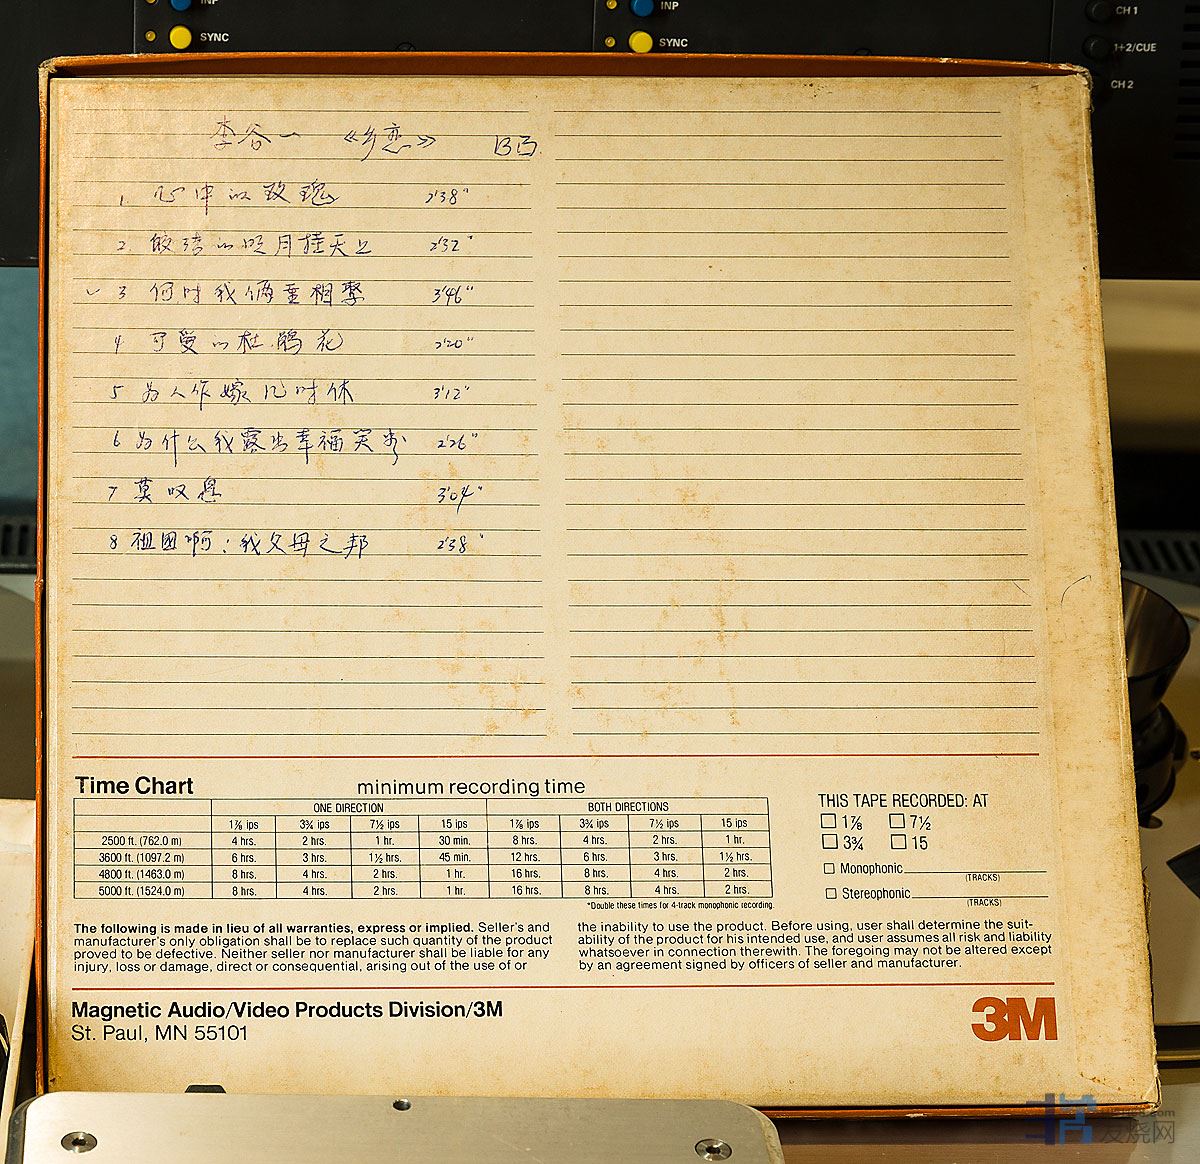 INP
SYNC
INP
SYNC
CH 1
1+2/CUE
CH 2
李谷一 《乡恋》 B面.
1. 心中的玫瑰 2'38"
2. 皎洁的明月挂天上 2'32"
✓ 3 何时我俩重相聚 3'46"
4 可爱的杜鹃花 2'20"
5 为人作嫁几时休 3'12"
6 为什么我露出幸福笑容 2'26"
7 莫叹息 3'04"
8 祖国啊!我父母之邦 2'38"
Time Chart minimum recording time
ONE DIRECTION BOTH DIRECTIONS
1⅞ ips 3¾ ips 7½ ips 15 ips 1⅞ ips 3¾ ips 7½ ips 15 ips
2500 ft. (762.0 m) 4 hrs. 2 hrs. 1 hr. 30 min. 8 hrs. 4 hrs. 2 hrs. 1 hr.
3600 ft. (1097.2 m) 6 hrs. 3 hrs. 1½ hrs. 45 min. 12 hrs. 6 hrs. 3 hrs. 1½ hrs.
4800 ft. (1463.0 m) 8 hrs. 4 hrs. 2 hrs. 1 hr. 16 hrs. 8 hrs. 4 hrs. 2 hrs.
5000 ft. (1524.0 m) 8 hrs. 4 hrs. 2 hrs. 1 hr. 16 hrs. 8 hrs. 4 hrs. 2 hrs.
*Double these times for 4-track monophonic recording.
THIS TAPE RECORDED: AT
☐ 1⅞ ☐ 7½
☐ 3¾ ☐ 15
☐ Monophonic
(TRACKS)
☐ Stereophonic
(TRACKS)
The following is made in lieu of all warranties, express or implied. Seller's and
manufacturer's only obligation shall be to replace such quantity of the product
proved to be defective. Neither seller nor manufacturer shall be liable for any
injury, loss or damage, direct or consequential, arising out of the use of or
the inability to use the product. Before using, user shall determine the suit-
ability of the product for his intended use, and user assumes all risk and liability
whatsoever in connection therewith. The foregoing may not be altered except
by an agreement signed by officers of seller and manufacturer.
Magnetic Audio/Video Products Division/3M
St. Paul, MN 55101
3M
发烧网